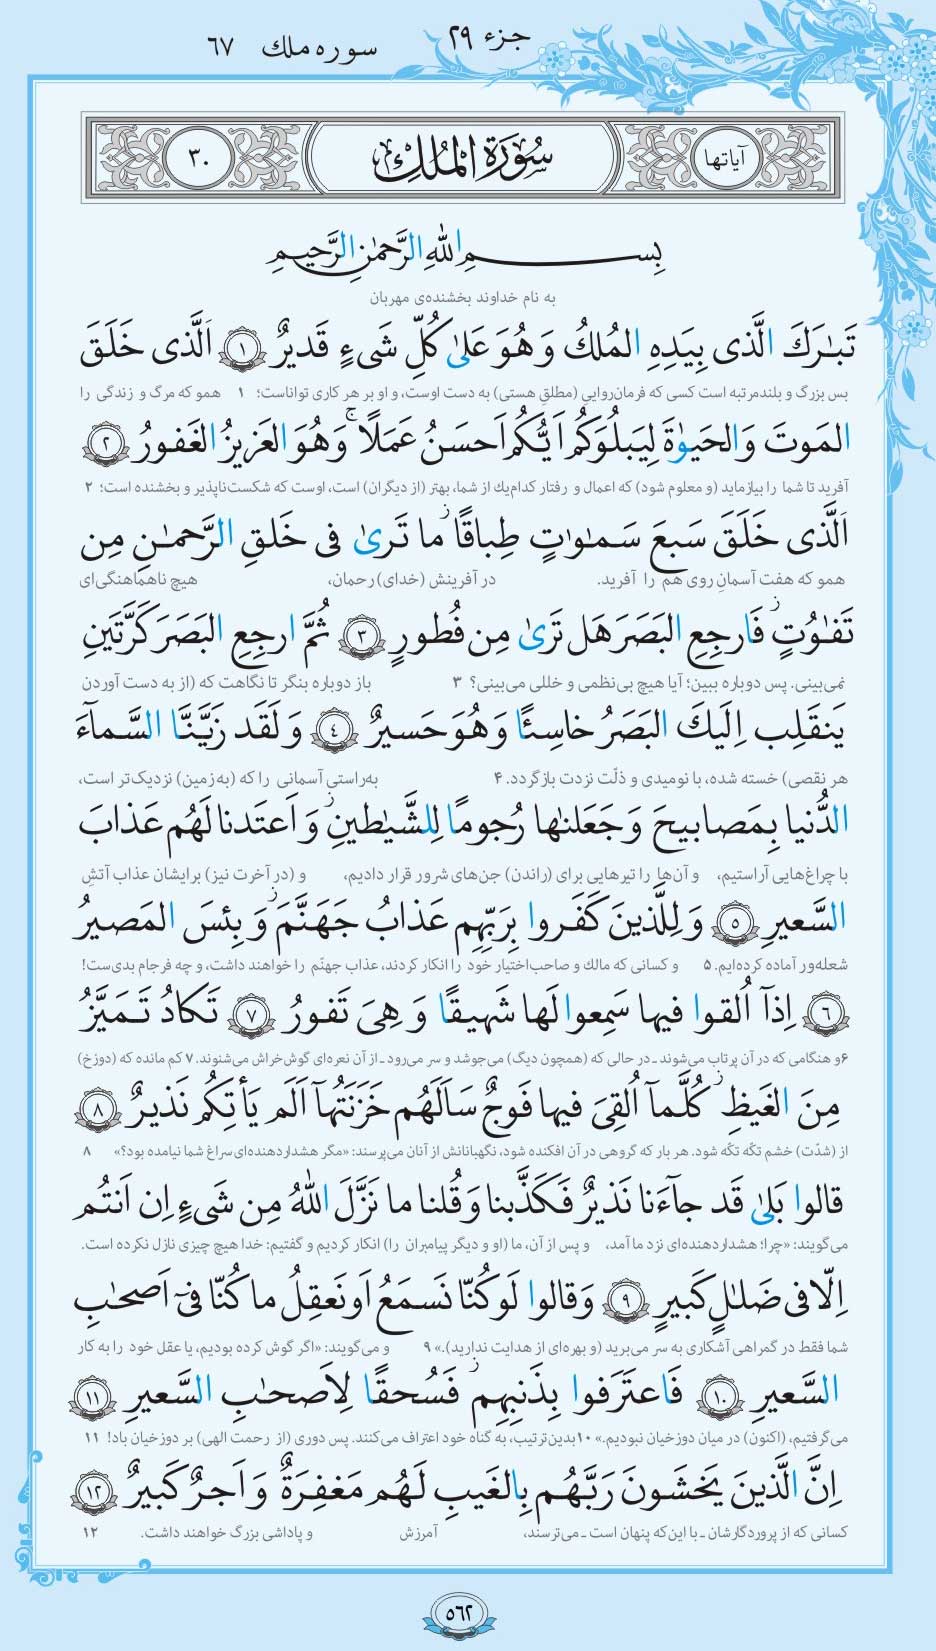 جزء ۲۹
سوره ملك ۶۷
آیاتها
سُورَةُ المُلكِ
۳۰
بِسمِ اللهِ الرَّحمٰنِ الرَّحیمِ
به نام خداوند بخشنده‌ی مهربان
تَبارَكَ الَّذی بِیَدِهِ المُلكُ وَ هُوَ عَلیٰ كُلِّ شَیءٍ قَدیرٌ ١ اَلَّذی خَلَقَ
بس بزرگ و بلندمرتبه است کسی که فرمان‌روایی (مطلق هستی) به دست اوست، و او بر هر کاری تواناست؛ ۱ همو که مرگ و زندگی را
المَوتَ وَ الحَیوٰةَ لِیَبلُوَكُم اَیُّكُم اَحسَنُ عَمَلًا ۚ وَ هُوَ العَزیزُ الغَفورُ ٢
آفرید تا شما را بیازماید (و معلوم شود) که اعمال و رفتار کدام‌یك از شما، بهتر (از دیگران) است، اوست که شکست‌ناپذیر و بخشنده است؛ ۲
اَلَّذی خَلَقَ سَبعَ سَمٰوٰتٍ طِباقًا ز ما تَریٰ فی خَلقِ الرَّحمٰنِ مِن
همو که هفت آسمانِ روی هم را آفرید. در آفرینش (خدای) رحمان، هیچ ناهماهنگی‌ای
تَفٰوُتٍ ز فَارجِعِ البَصَرَ هَل تَریٰ مِن فُطورٍ ٣ ثُمَّ ارجِعِ البَصَرَ كَرَّتَینِ
نمی‌بینی. پس دوباره ببین؛ آیا هیچ بی‌نظمی و خللی می‌بینی؟ ۳ باز دوباره بنگر تا نگاهت که (از به دست آوردن
یَنقَلِب اِلَیكَ البَصَرُ خاسِئًا وَ هُوَ حَسیرٌ ٤ وَ لَقَد زَیَّنَّا السَّماۤءَ
هر نقصی) خسته شده، با نومیدی و ذلّت نزدت بازگردد. ۴ به‌راستی آسمانی را که (به‌زمین) نزدیک‌تر است،
الدُّنیا بِمَصابیحَ وَ جَعَلنٰها رُجومًا لِلشَّیٰطینِ ز وَ اَعتَدنا لَهُم عَذابَ
با چراغ‌هایی آراستیم، و آن‌ها را تیرهایی برای (راندن) جن‌های شرور قرار دادیم، و (در آخرت نیز) برایشان عذاب آتشِ
السَّعیرِ ٥ وَ لِلَّذینَ كَفَروا بِرَبِّهِم عَذابُ جَهَنَّمَ ز وَ بِئسَ المَصیرُ
شعله‌ور آماده کرده‌ایم. ۵ و کسانی که مالك و صاحب‌اختیار خود را انکار کردند، عذاب جهنّم را خواهند داشت، و چه فرجام بدی‌ست!
٦ اِذاۤ اُلقوا فیها سَمِعوا لَها شَهیقًا وَ هِیَ تَفورُ ٧ تَكادُ تَمَیَّزُ
۶و هنگامی که در آن پرتاب می‌شوند ـ در حالی که (همچون دیگ) می‌جوشد و سر می‌رود ـ از آن نعره‌ای گوش‌خراش می‌شنوند. ۷ کم مانده که (دوزخ)
مِنَ الغَیظِ ز كُلَّماۤ اُلقِیَ فیها فَوجٌ سَاَلَهُم خَزَنَتُهاۤ اَلَم یَأتِكُم نَذیرٌ ٨
از (شدّت) خشم تکّه تکّه شود. هر بار که گروهی در آن افکنده شود، نگهبانانش از آنان می‌پرسند: «مگر هشداردهنده‌ای سراغ شما نیامده بود؟» ۸
قالوا بَلیٰ قَد جاۤءَنا نَذیرٌ فَكَذَّبنا وَ قُلنا ما نَزَّلَ اللهُ مِن شَیءٍ اِن اَنتُم
می‌گویند: «چرا؛ هشداردهنده‌ای نزد ما آمد، و پس از آن، ما (او و دیگر پیامبران را) انکار کردیم و گفتیم: خدا هیچ چیزی نازل نکرده است.
اِلّا فی ضَلالٍ كَبیرٍ ٩ وَ قالوا لَو كُنّا نَسمَعُ اَو نَعقِلُ ما كُنّا فیۤ اَصحٰبِ
شما فقط در گمراهی آشکاری به سر می‌برید (و بهره‌ای از هدایت ندارید).» ۹ و می‌گویند: «اگر گوش کرده بودیم، یا عقل خود را به کار
السَّعیرِ ١٠ فَاعتَرَفوا بِذَنبِهِم ز فَسُحقًا لِاَصحٰبِ السَّعیرِ ١١
می‌گرفتیم، (اکنون) در میان دوزخیان نبودیم.» ۱۰ بدین‌ترتیب، به گناه خود اعتراف می‌کنند. پس دوری (از رحمت الهی) بر دوزخیان باد! ۱۱
اِنَّ الَّذینَ یَخشَونَ رَبَّهُم بِالغَیبِ لَهُم مَغفِرَةٌ وَ اَجرٌ كَبیرٌ ١٢
کسانی که از پروردگارشان ـ با این‌که پنهان است ـ می‌ترسند، آمرزش و پاداشی بزرگ خواهند داشت. ۱۲
۵۶۲